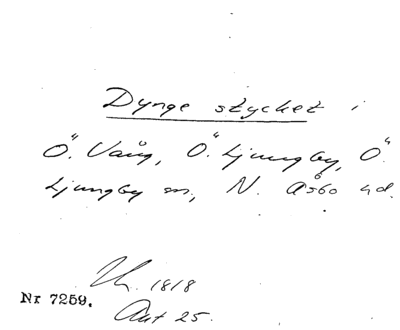 Dynge stycket i
Ö. Vång, Ö. Ljungby, Ö.
Ljungby sn, N. Åsbo hd.
1818
Nr 7259.
Akt 25.